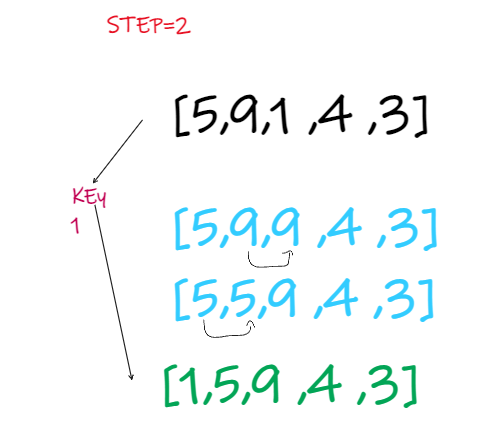 STEP=2
[5,9,1 ,4 ,3]
KEy
1
[5,9,9 ,4 ,3]
[5,5,9 ,4 ,3]
[1,5,9 ,4 ,3]